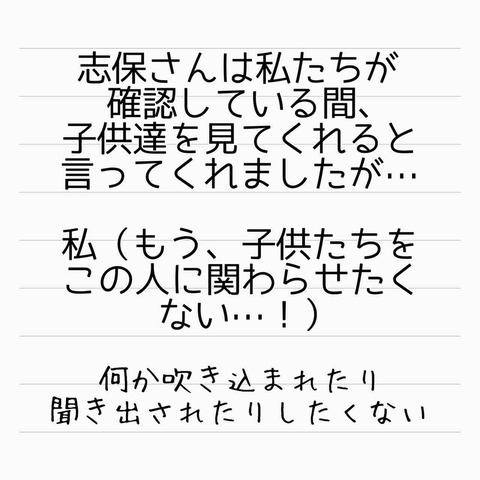 志保さんは私たちが
確認している間、
子供達を見てくれると
言ってくれましたが…
私（もう、子供たちを
この人に関わらせたく
ない…！）
何か吹き込まれたり
聞き出されたりしたくない